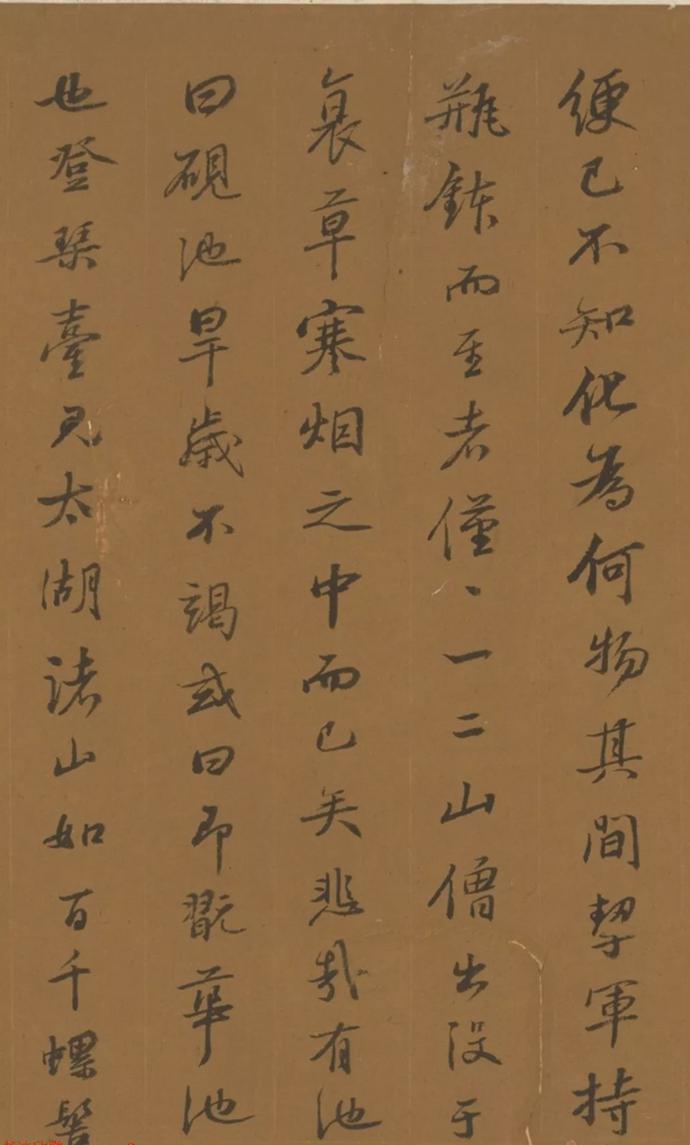 便已不知化為何物其間挈軍持
瓶鉢而至者僅〻一二山僧出没于
衰草寒烟之中而已矣悲哉有池
曰硯池旱歲不竭或曰即翫華池
也登琴臺見太湖諸山如百千螺髻